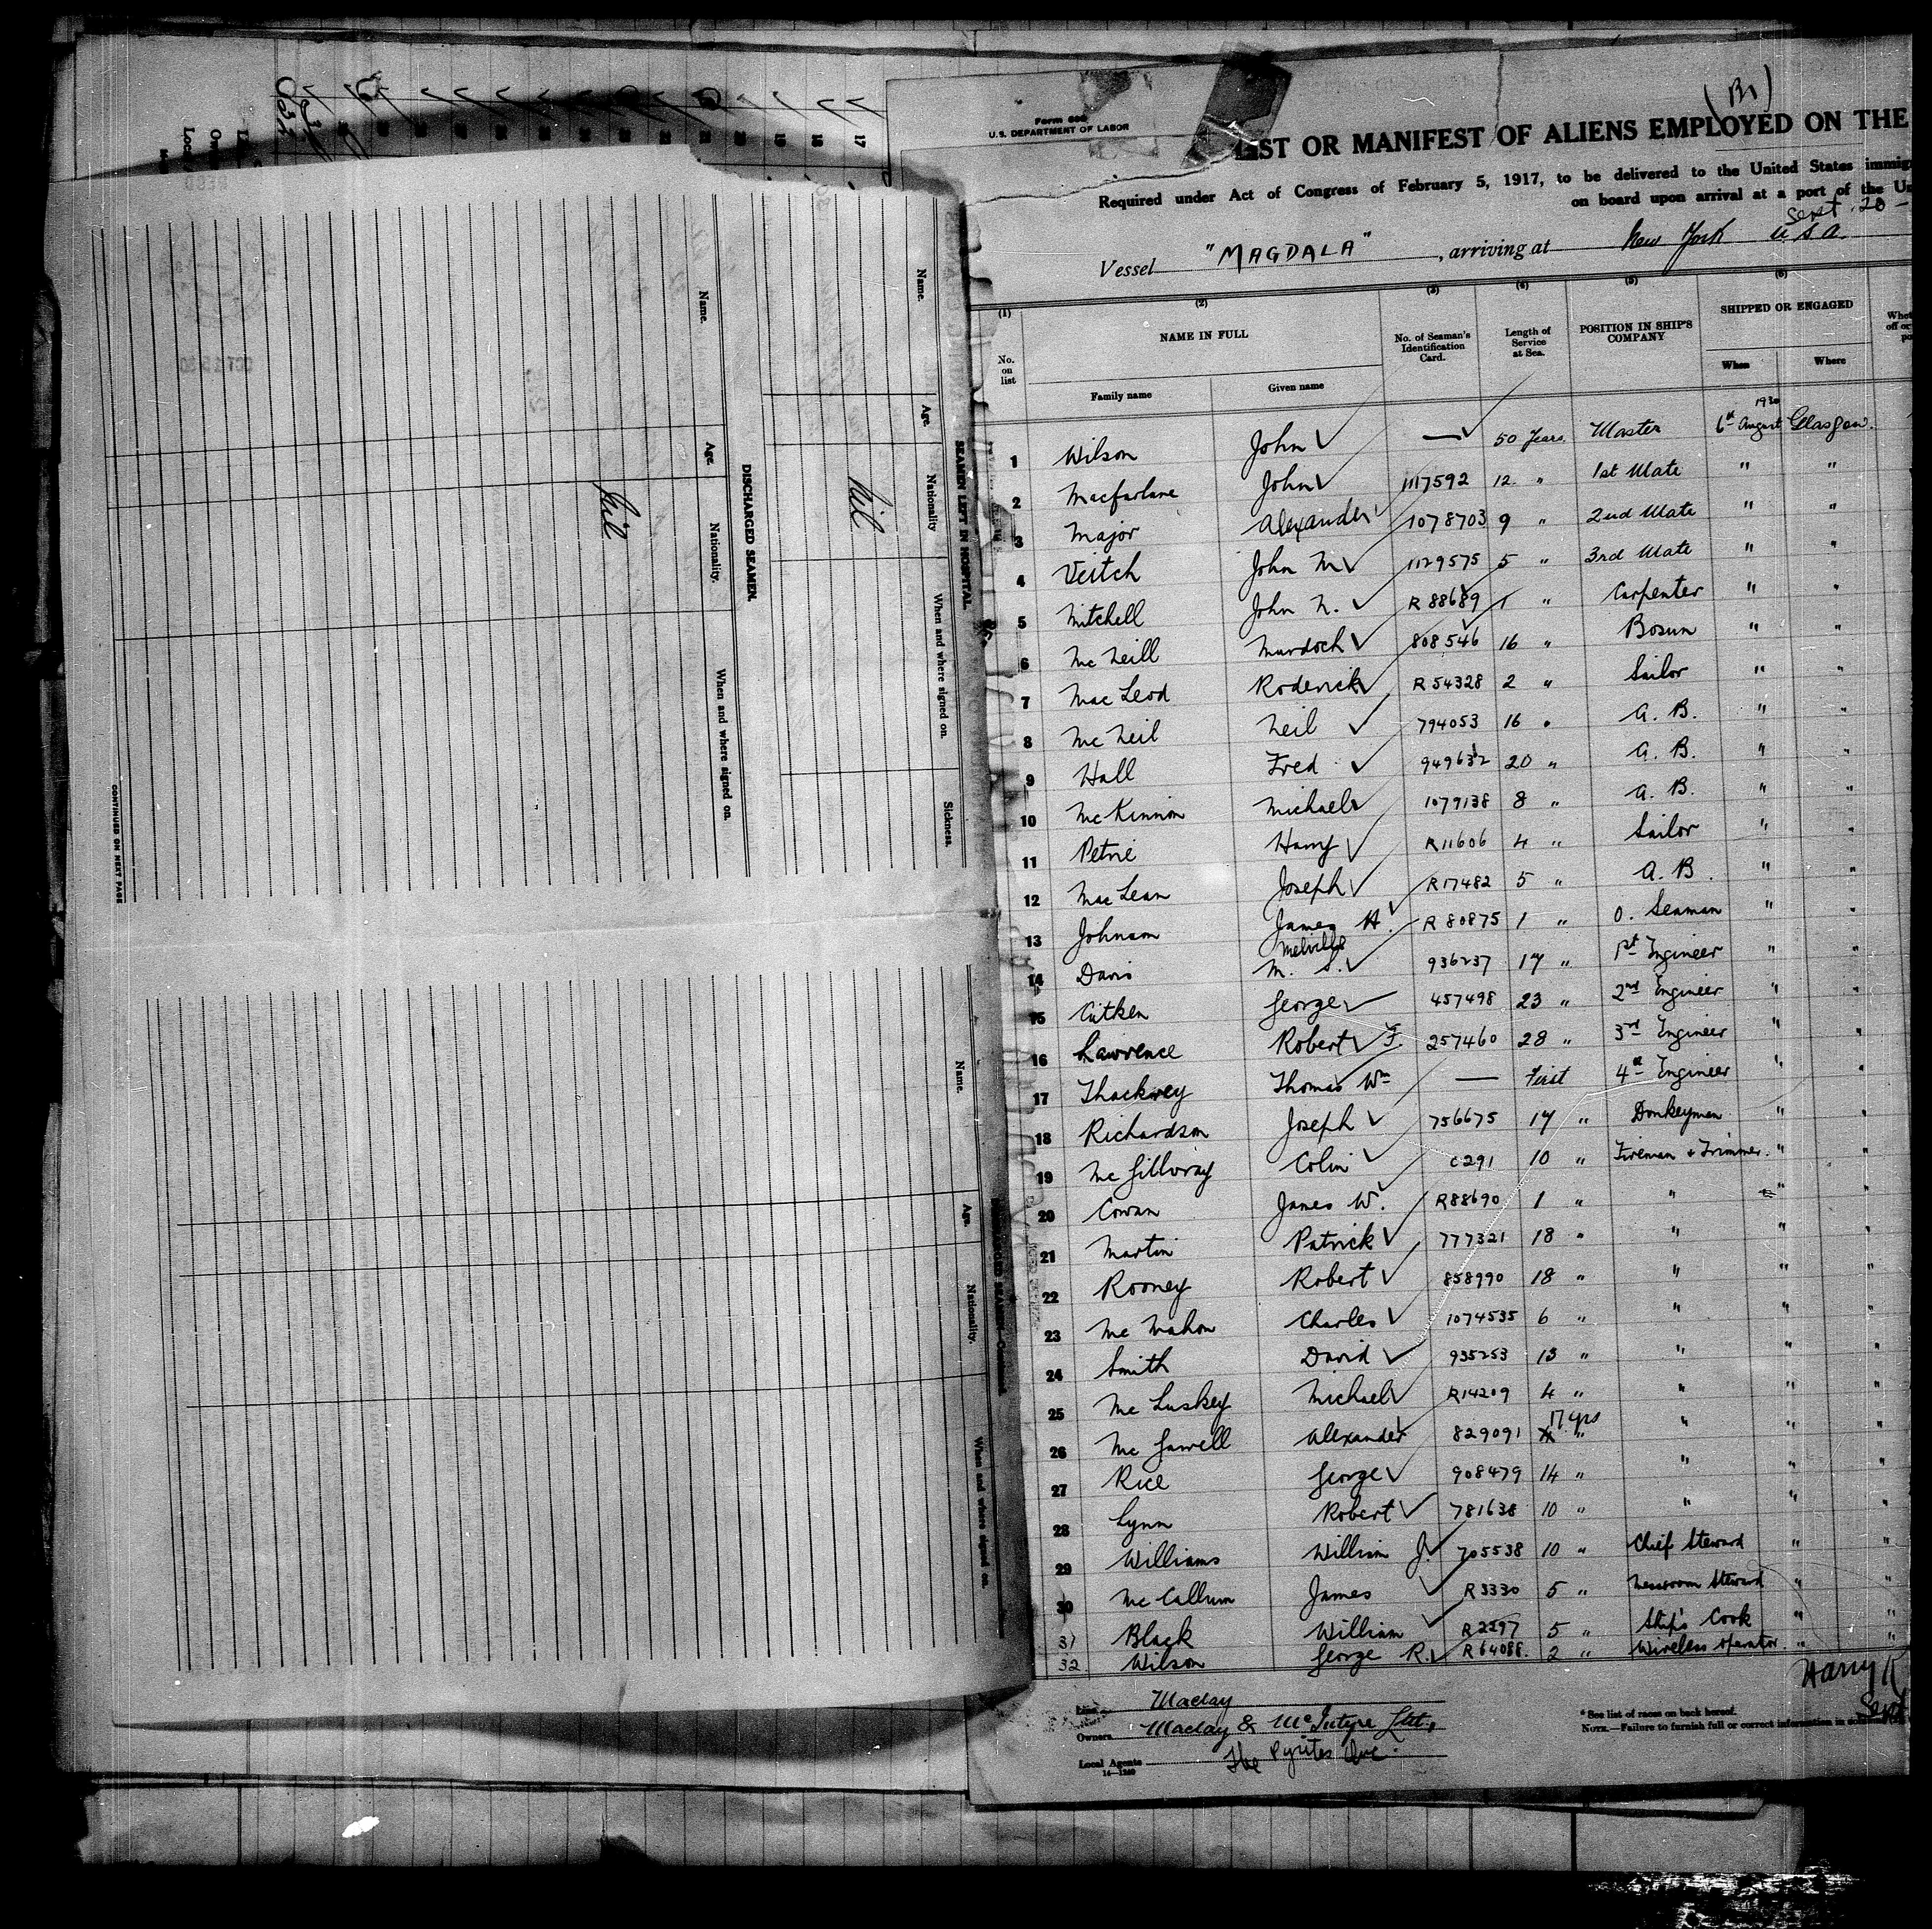 (Br)
Form 680
U.S. DEPARTMENT OF LABOR
LIST OR MANIFEST OF ALIENS EMPLOYED ON THE
Required under Act of Congress of February 5, 1917, to be delivered to the United States immig
on board upon arrival at a port of the Un
Sept. 20 -
Vessel "MAGDALA", arriving at New York U S A.
(1) (2) (3) (4) (5) (6)
No. on list
NAME IN FULL
Family name
Given name
No. of Seaman's Identification Card.
Length of Service at Sea.
POSITION IN SHIP'S COMPANY
SHIPPED OR ENGAGED
When
Where
1930
1 Wilson John — 50 Years Master 6th August Glasgow.
2 Macfarlane John 1117592 12 " 1st Mate " "
3 Major Alexander 1078703 9 " 2nd Mate " "
4 Veitch John M 1129575 5 " 3rd Mate " "
5 Mitchell John N. R 88689 1 " Carpenter " "
6 Mc Neill Murdoch 808546 16 " Bosun " "
7 Mac Leod Roderick R 54328 2 " Sailor " "
8 Mc Neil Neil 794053 16 " A. B. " "
9 Hall Fred 20 " A. B. " "
10 Mc Kinnon Michael 1079138 8 " A. B. " "
11 Petrie Harry R11606 4 " Sailor " "
12 Mac Lean Joseph R17482 5 " A. B. " "
13 Johnson James H. R 80875 1 " O. Seaman " "
Melville
14 Davis M. S. 936237 17 " 1st Engineer " "
15 Aitken George 457498 23 " 2nd Engineer " "
16 Lawrence Robert F. 257460 28 " 3rd Engineer " "
17 Thackwey Thomas Wm — First 4th Engineer " "
18 Richardson Joseph 756675 17 " Donkeyman " "
19 Mc Gillvray Colin C291 10 " Fireman & Trimmer. " "
20 Cowan James W. R88690 1 " " " "
21 Martin Patrick 777321 18 " " " "
22 Rooney Robert 858990 18 " " " "
23 Mc Mahon Charles 1074535 6 " " " "
24 Smith David 935253 13 " " " "
25 Mc Luskey Michael R14209 4 " " " "
26 Mc Alexander 829091 17 yrs " " " "
27 Rice George 908479 14 " " " "
28 Lynn Robert 781638 10 " " " "
29 Williams William J. 705538 10 " Chief Steward " "
30 Mc Callum James R3330 5 " Messroom Steward " "
31 Black William R2297 5 " Ship's Cook " "
32 Wilson George R. R64088. 2 " Wireless operator. " "
Harry R
Sept
Line Maclay
Owners Maclay & McIntyre Ltd.,
Local Agents The Pyrites Inc.
14—1240
* See list of races on back hereof.
NOTE.—Failure to furnish full or correct information in
SEAMEN LEFT IN HOSPITAL
Name. Age. Nationality When and where signed on. Sickness.
Nil
DISCHARGED SEAMEN.
Name. Age. Nationality. When and where signed on.
Nil
CONTINUED ON NEXT PAGE
DISCHARGED SEAMEN—Continued
Name. Age. Nationality. When and where signed on.
17
18
19
20
21